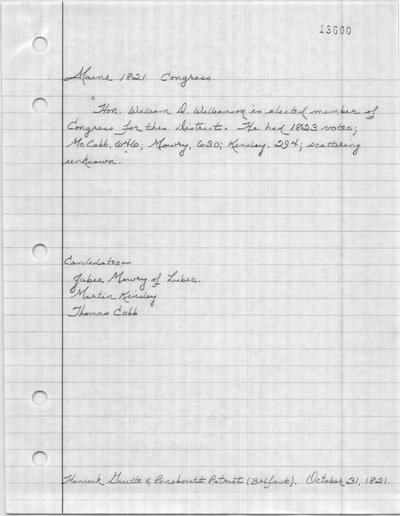 13600
Maine 1821 Congress.
"Hon. William D. Williamson is elected member of
Congress for this District. He had 1823 votes;
McCobb, 646; Mowry, 630; Kinsley, 294; scattering
unknown."
Candidates—
Jabez Mowry of Lubec.
Martin Kinsley
Thomas Cobb
Hancock Gazette & Penobscott Patriot (Belfast). October 31, 1821.